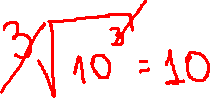 ∛10³ = 10